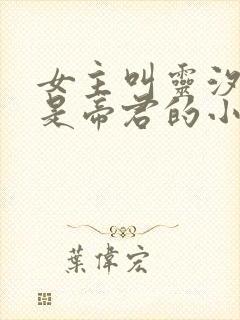 女主叫靈汐
是帝君的小
葉偉宏